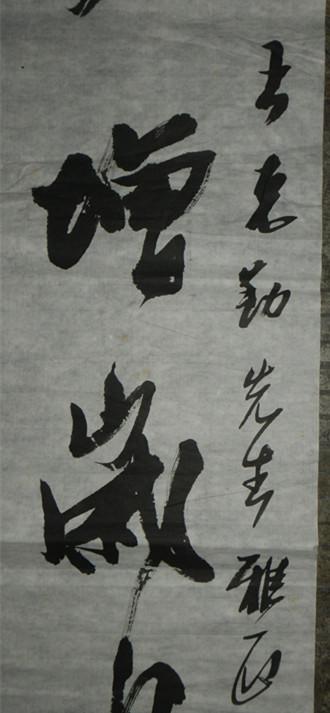 志勤先生雅正
增歲